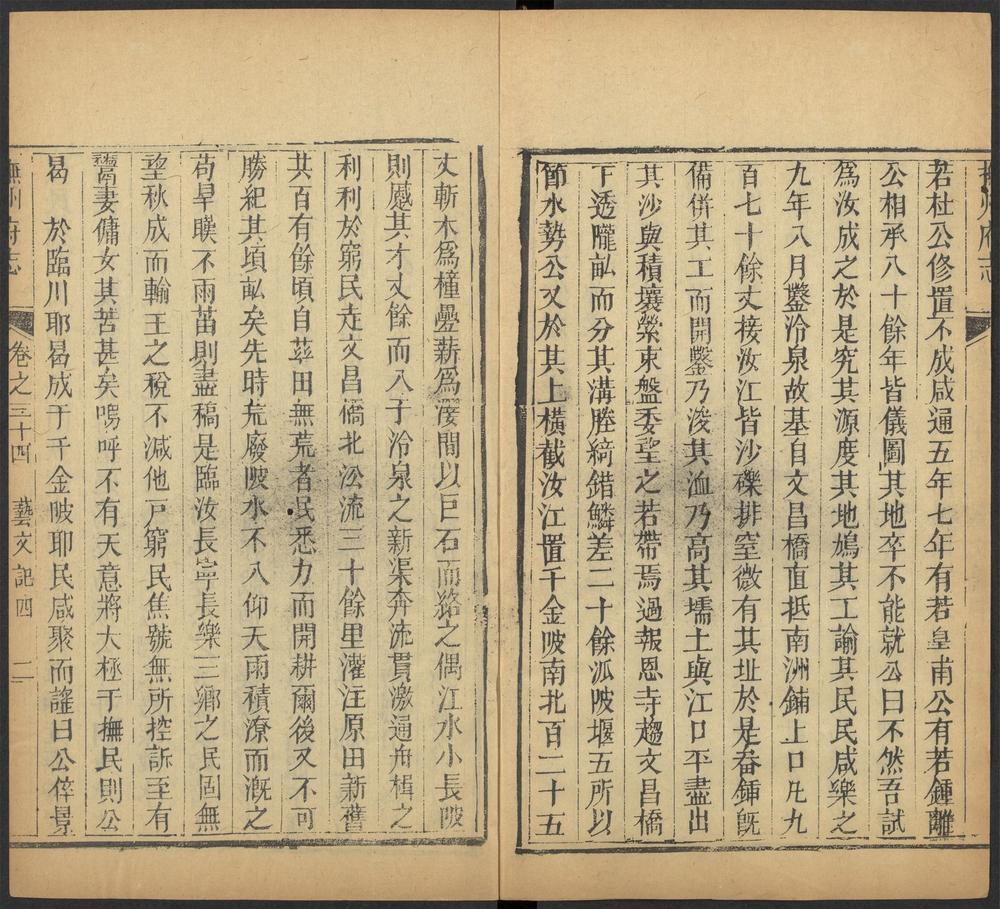 撫州府志
若杜公修置不成咸通五年七年有若皇甫公有若鍾離
公相承八十餘年皆儀圖其地卒不能就公曰不然吾試
為汝成之於是究其源度其地鳩其工諭其民民咸樂之
九年八月鑿冷泉故基自文昌橋直抵南洲鋪上口凡九
百七十餘丈接汝江皆沙礫排窒微有其址於是畚鍤旣
備併其工而開鑿乃浚其洫乃高其壖土與江口平盡出
其沙與積壤縈束盤委望之若帶焉過報恩寺趨文昌橋
下透隴畝而分其溝塍綺錯鱗差二十餘派陂堰五所以
節水勢公又於其上橫截汝江置千金陂南北百二十五
丈斬木爲橦疊薪爲濅間以巨石而路之偶江水小長陂
則蹙其才丈餘而入于冷泉之新渠奔流貫激通舟楫之
利利於窮民走文昌橋北沿流三十餘里灌注原田新舊
共百有餘頃自茲田無荒者民悉力而開耕爾後又不可
勝紀其頃畝矣先時荒廢陂水不入仰天雨積潦而漑之
苟旱暵不雨苗則盡稿是臨汝長寧長樂三鄉之民固無
望秋成而輸王之稅不減他戸窮民焦號無所控訴至有
鬻妻傭女其苦甚矣嗚呼不有天意將大極于撫民則公
曷　於臨川耶曷成于千金陂耶民咸聚而謠曰公倅景
撫州府志　卷之三十四　藝文記四　二